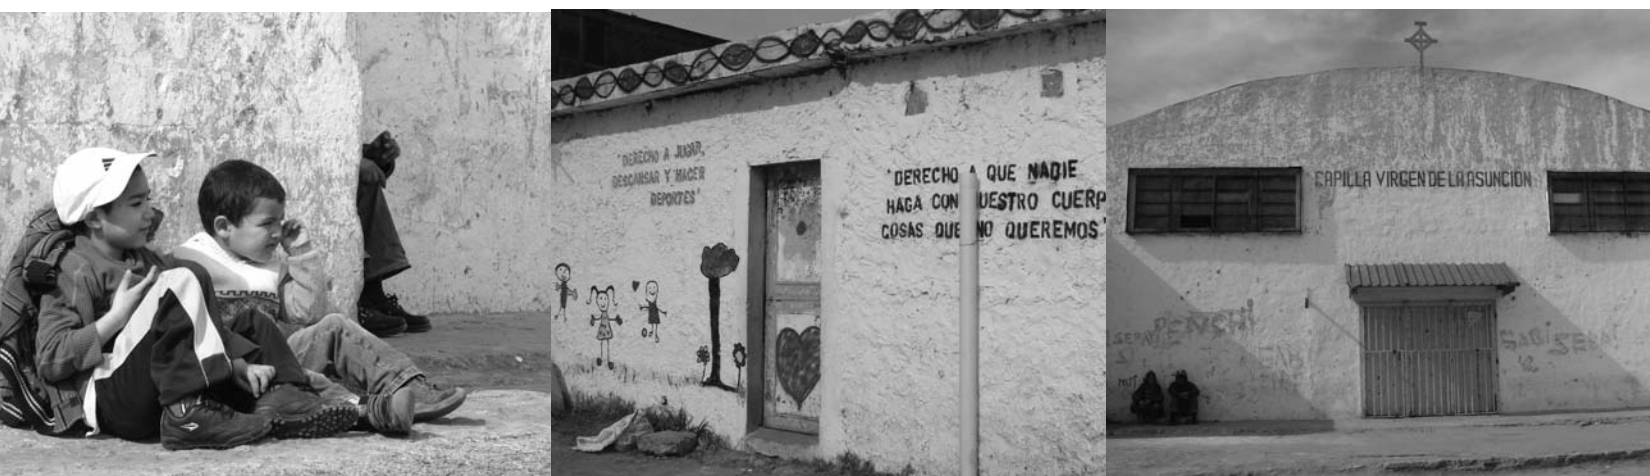 "DERECHO A JUGAR,
DESCANSAR Y HACER
DEPORTES"
"DERECHO A QUE NADIE
HAGA CON UESTRO CUERP
COSAS QUE NO QUEREMOS"
CAPILLA VIRGEN DE LA ASUNCIÓN